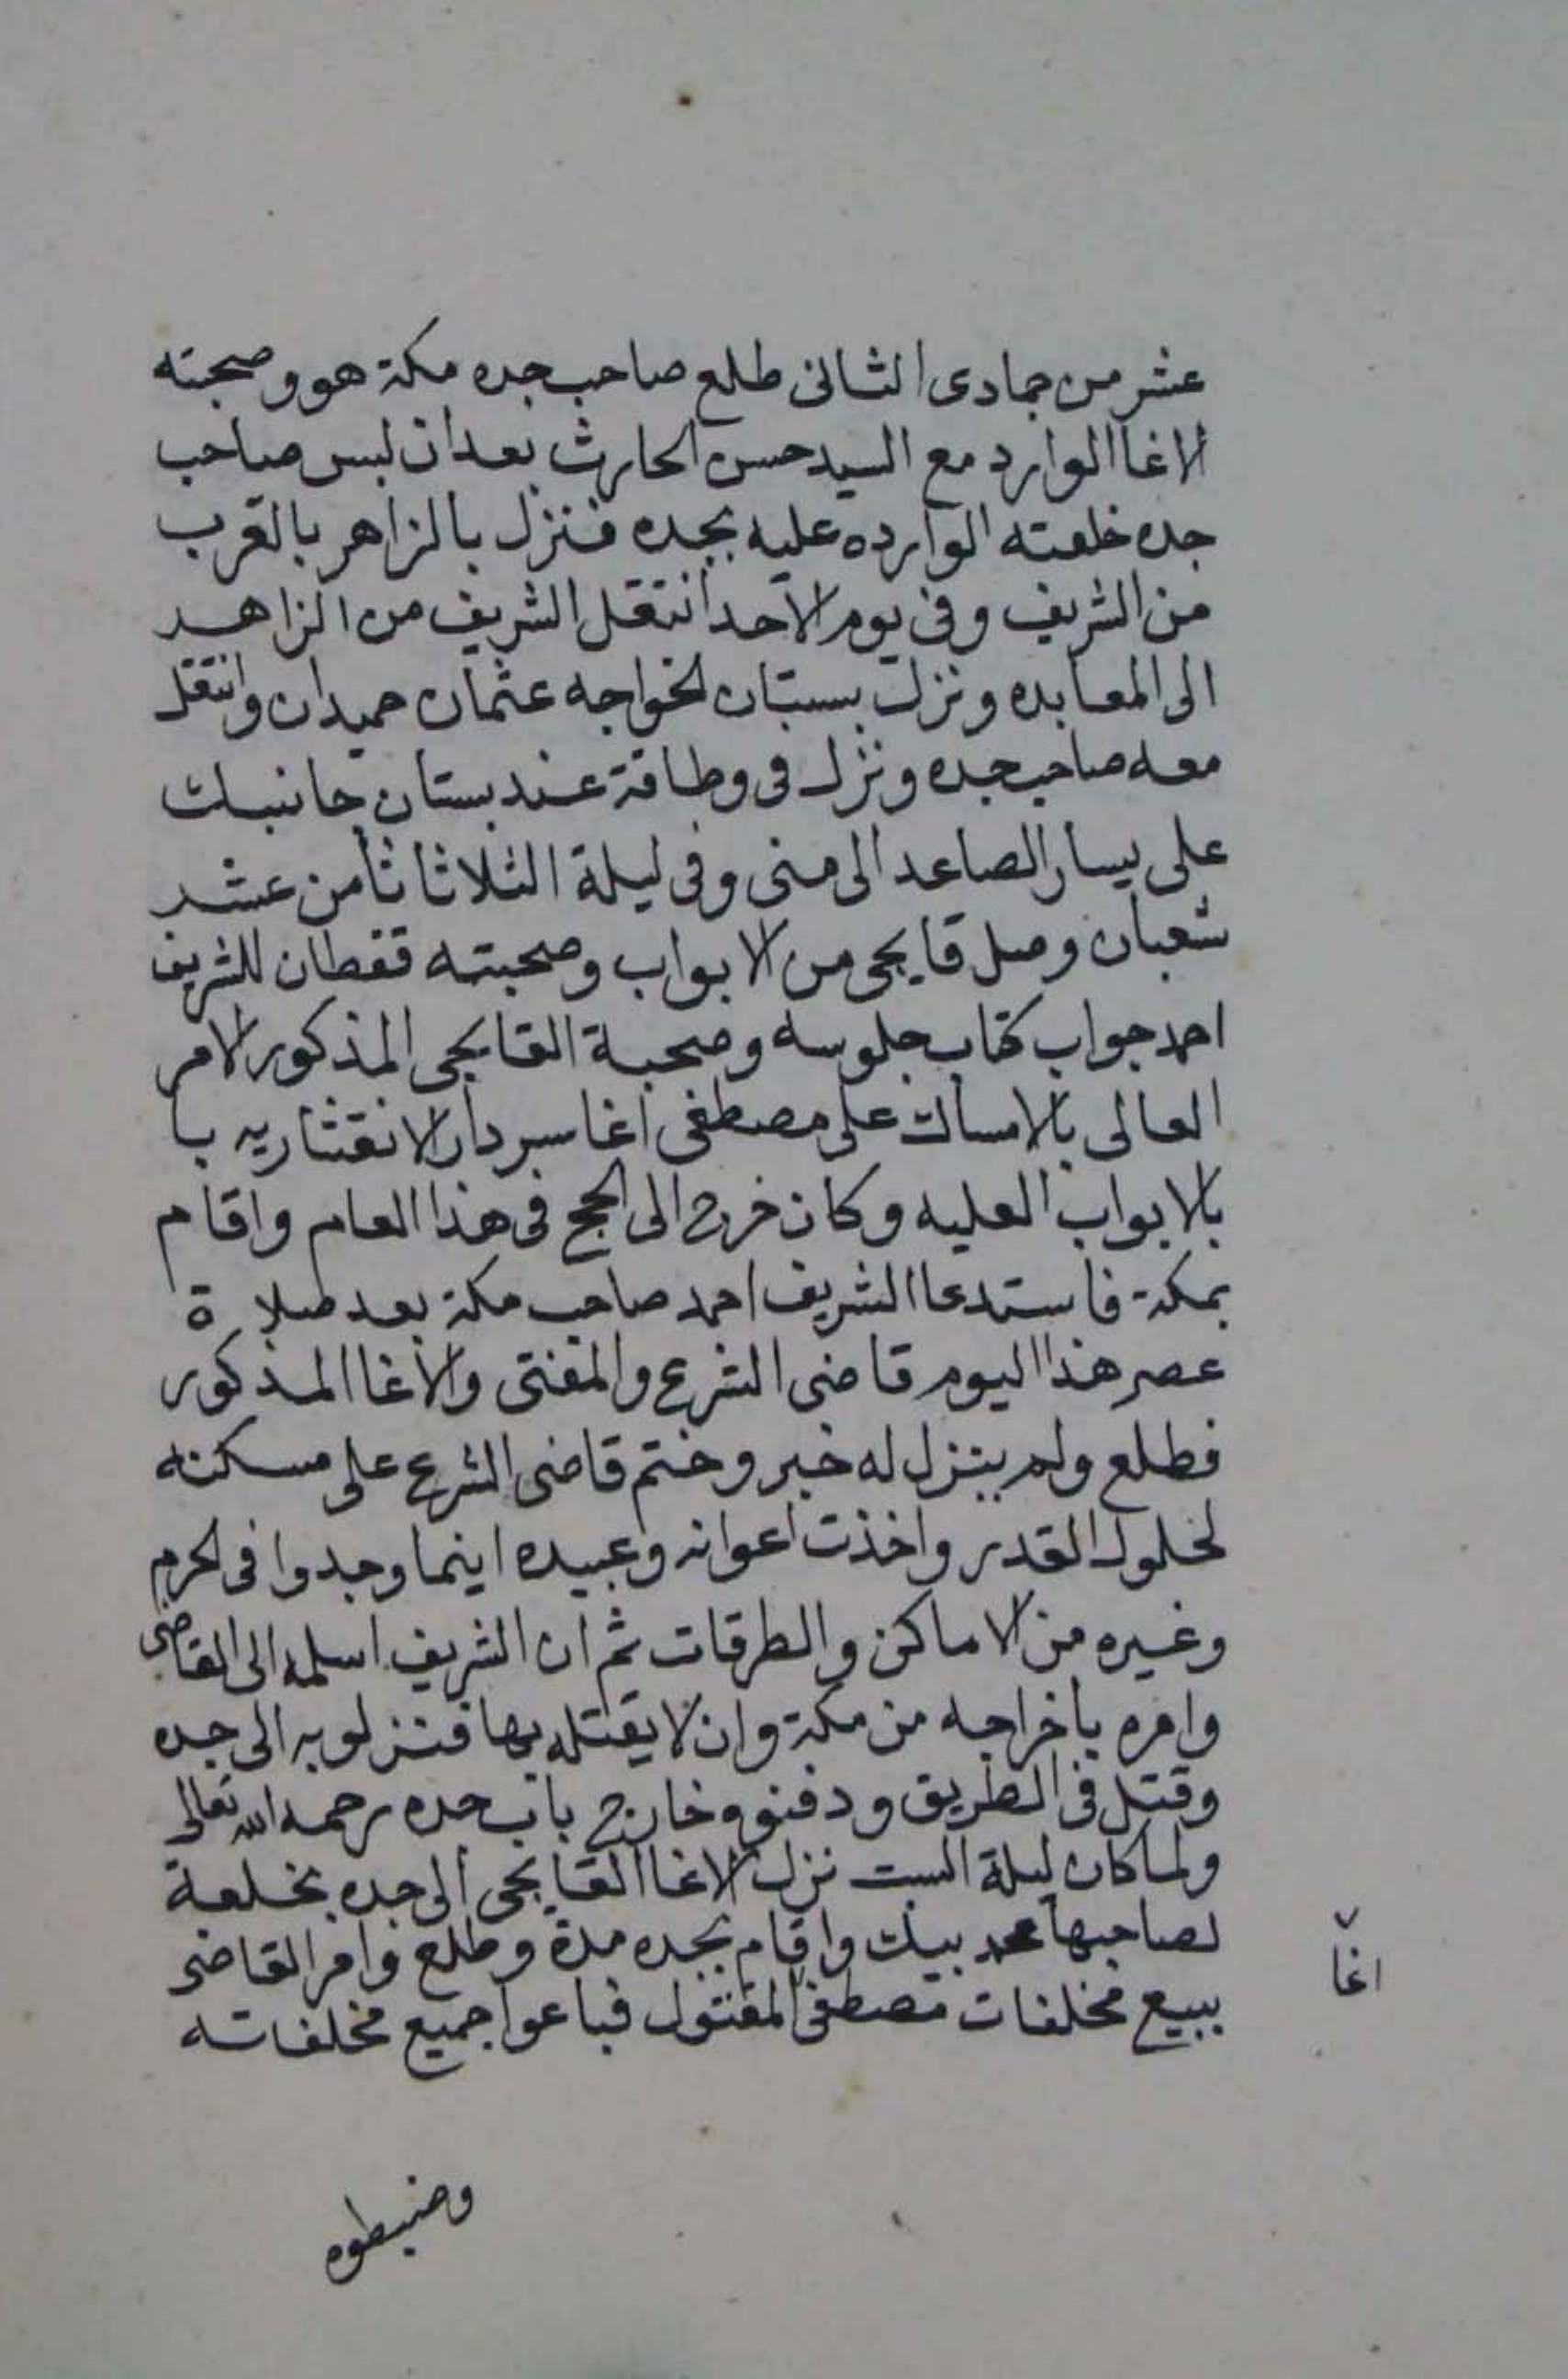 عشر من جمادى الثانى طلع صاحب جده مكة هو وصحبته
الاغا الوارد مع السيد حسن الحارث بعد ان لبس صاحب
جده خلعته الوارده عليه بجده فنزل بالزاهر بالقرب
من الشريف وفى يوم الاحد انتقل الشريف من الزاهر
الى المعابده ونزل ببستان الخواجه عثمان حميدان وانتقل
معه صاحب جده ونزل فى وطاقة عند بستان جانبك
على يسار الصاعد الى منى وفى ليلة الثلاثا ثامن عشر
شعبان وصل قابجى من الابواب وصحبته قفطان للشريف
احمد جواب كتاب جلوسه وصحبة القابجى المذكور الامر
العالى بالامساك على مصطفى اغا سردار الانقشاريه با
بالابواب العليه وكان خرج الى الحج فى هذا العام واقام
بمكة فاستدعا الشريف احمد صاحب مكة بعد صلاة
عصر هذا اليوم قاضى الشرع والمفتى والاغا المذكور
فطلع ولم ينزل له خبر وختم قاضى الشرع على مسكنه
لحلول القدر واخذت اعوانه وعبيده اينما وجدوا فى الحرم
وغيره من الاماكن والطرقات ثم ان الشريف اسلمه الى القاضى
وامره باخراجه من مكة وان لا يقتله بها فنزلو به الى جده
وقتل فى الطريق ودفنوه خارج باب جده رحمه الله تعالى
ولما كان ليلة السبت نزل الاغا القابجى الى جده بخلعة
لصاحبها محمد بيك واقام بجده مدة وطلع وامر القاضى
ببيع مخلفات مصطفى المقتول فباعوا جميع مخلفاته
اغا
وضبطوه